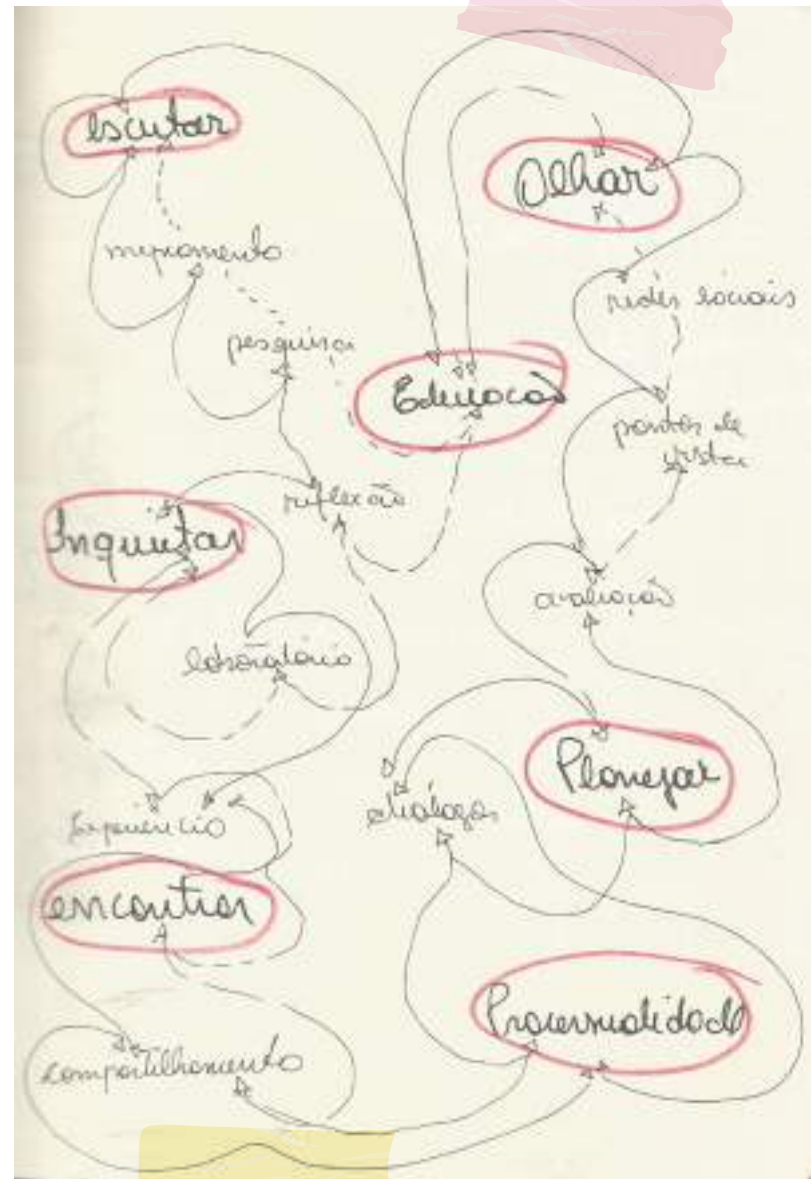 escutar
Olhar
redes sociais
pesquisa
Educação
pontos de
vista
reflexão
Inquietar
avaliação
laboratório
Planejar
diálogos
Experiência
encontrar
Processualidade
compartilhamento